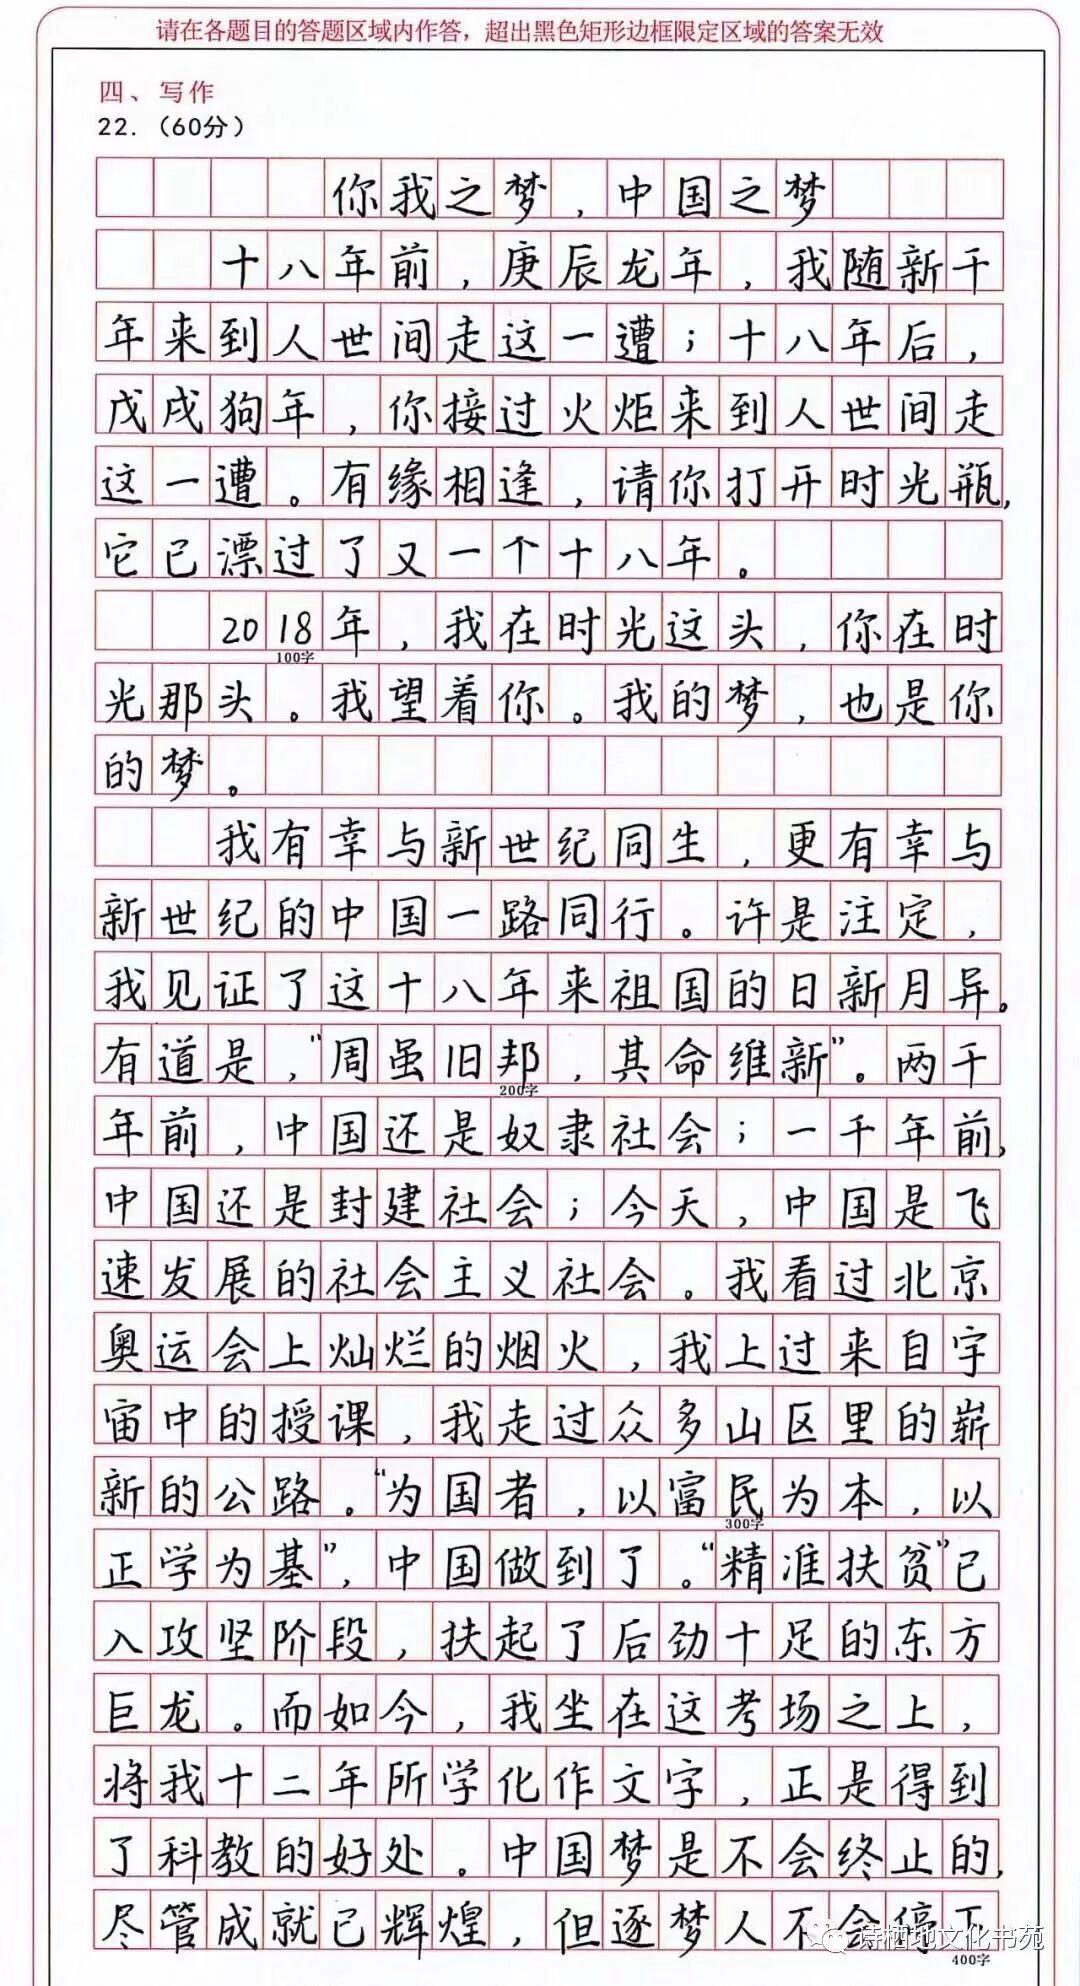 请在各题目的答题区域内作答，超出黑色矩形边框限定区域的答案无效
四、写作
22.（60分）
你我之梦，中国之梦
十八年前，庚辰龙年，我随新千
年来到人世间走这一遭；十八年后，
戊戌狗年，你接过火炬来到人世间走
这一遭。有缘相逢，请你打开时光瓶，
它已漂过了又一个十八年。
2018年，我在时光这头，你在时
100字
光那头。我望着你。我的梦，也是你
的梦。
我有幸与新世纪同生，更有幸与
新世纪的中国一路同行。许是注定，
我见证了这十八年来祖国的日新月异。
有道是，“周虽旧邦，其命维新”。两千
200字
年前，中国还是奴隶社会；一千年前，
中国还是封建社会；今天，中国是飞
速发展的社会主义社会。我看过北京
奥运会上灿烂的烟火，我上过来自宇
宙中的授课，我走过众多山区里的崭
新的公路。“为国者，以富民为本，以
300字
正学为基”，中国做到了。“精准扶贫”已
入攻坚阶段，扶起了后劲十足的东方
巨龙。而如今，我坐在这考场之上，
将我十二年所学化作文字，正是得到
了科教的好处。中国梦是不会终止的，
尽管成就已辉煌，但逐梦人不会停下
诗栖地文化书苑
400字